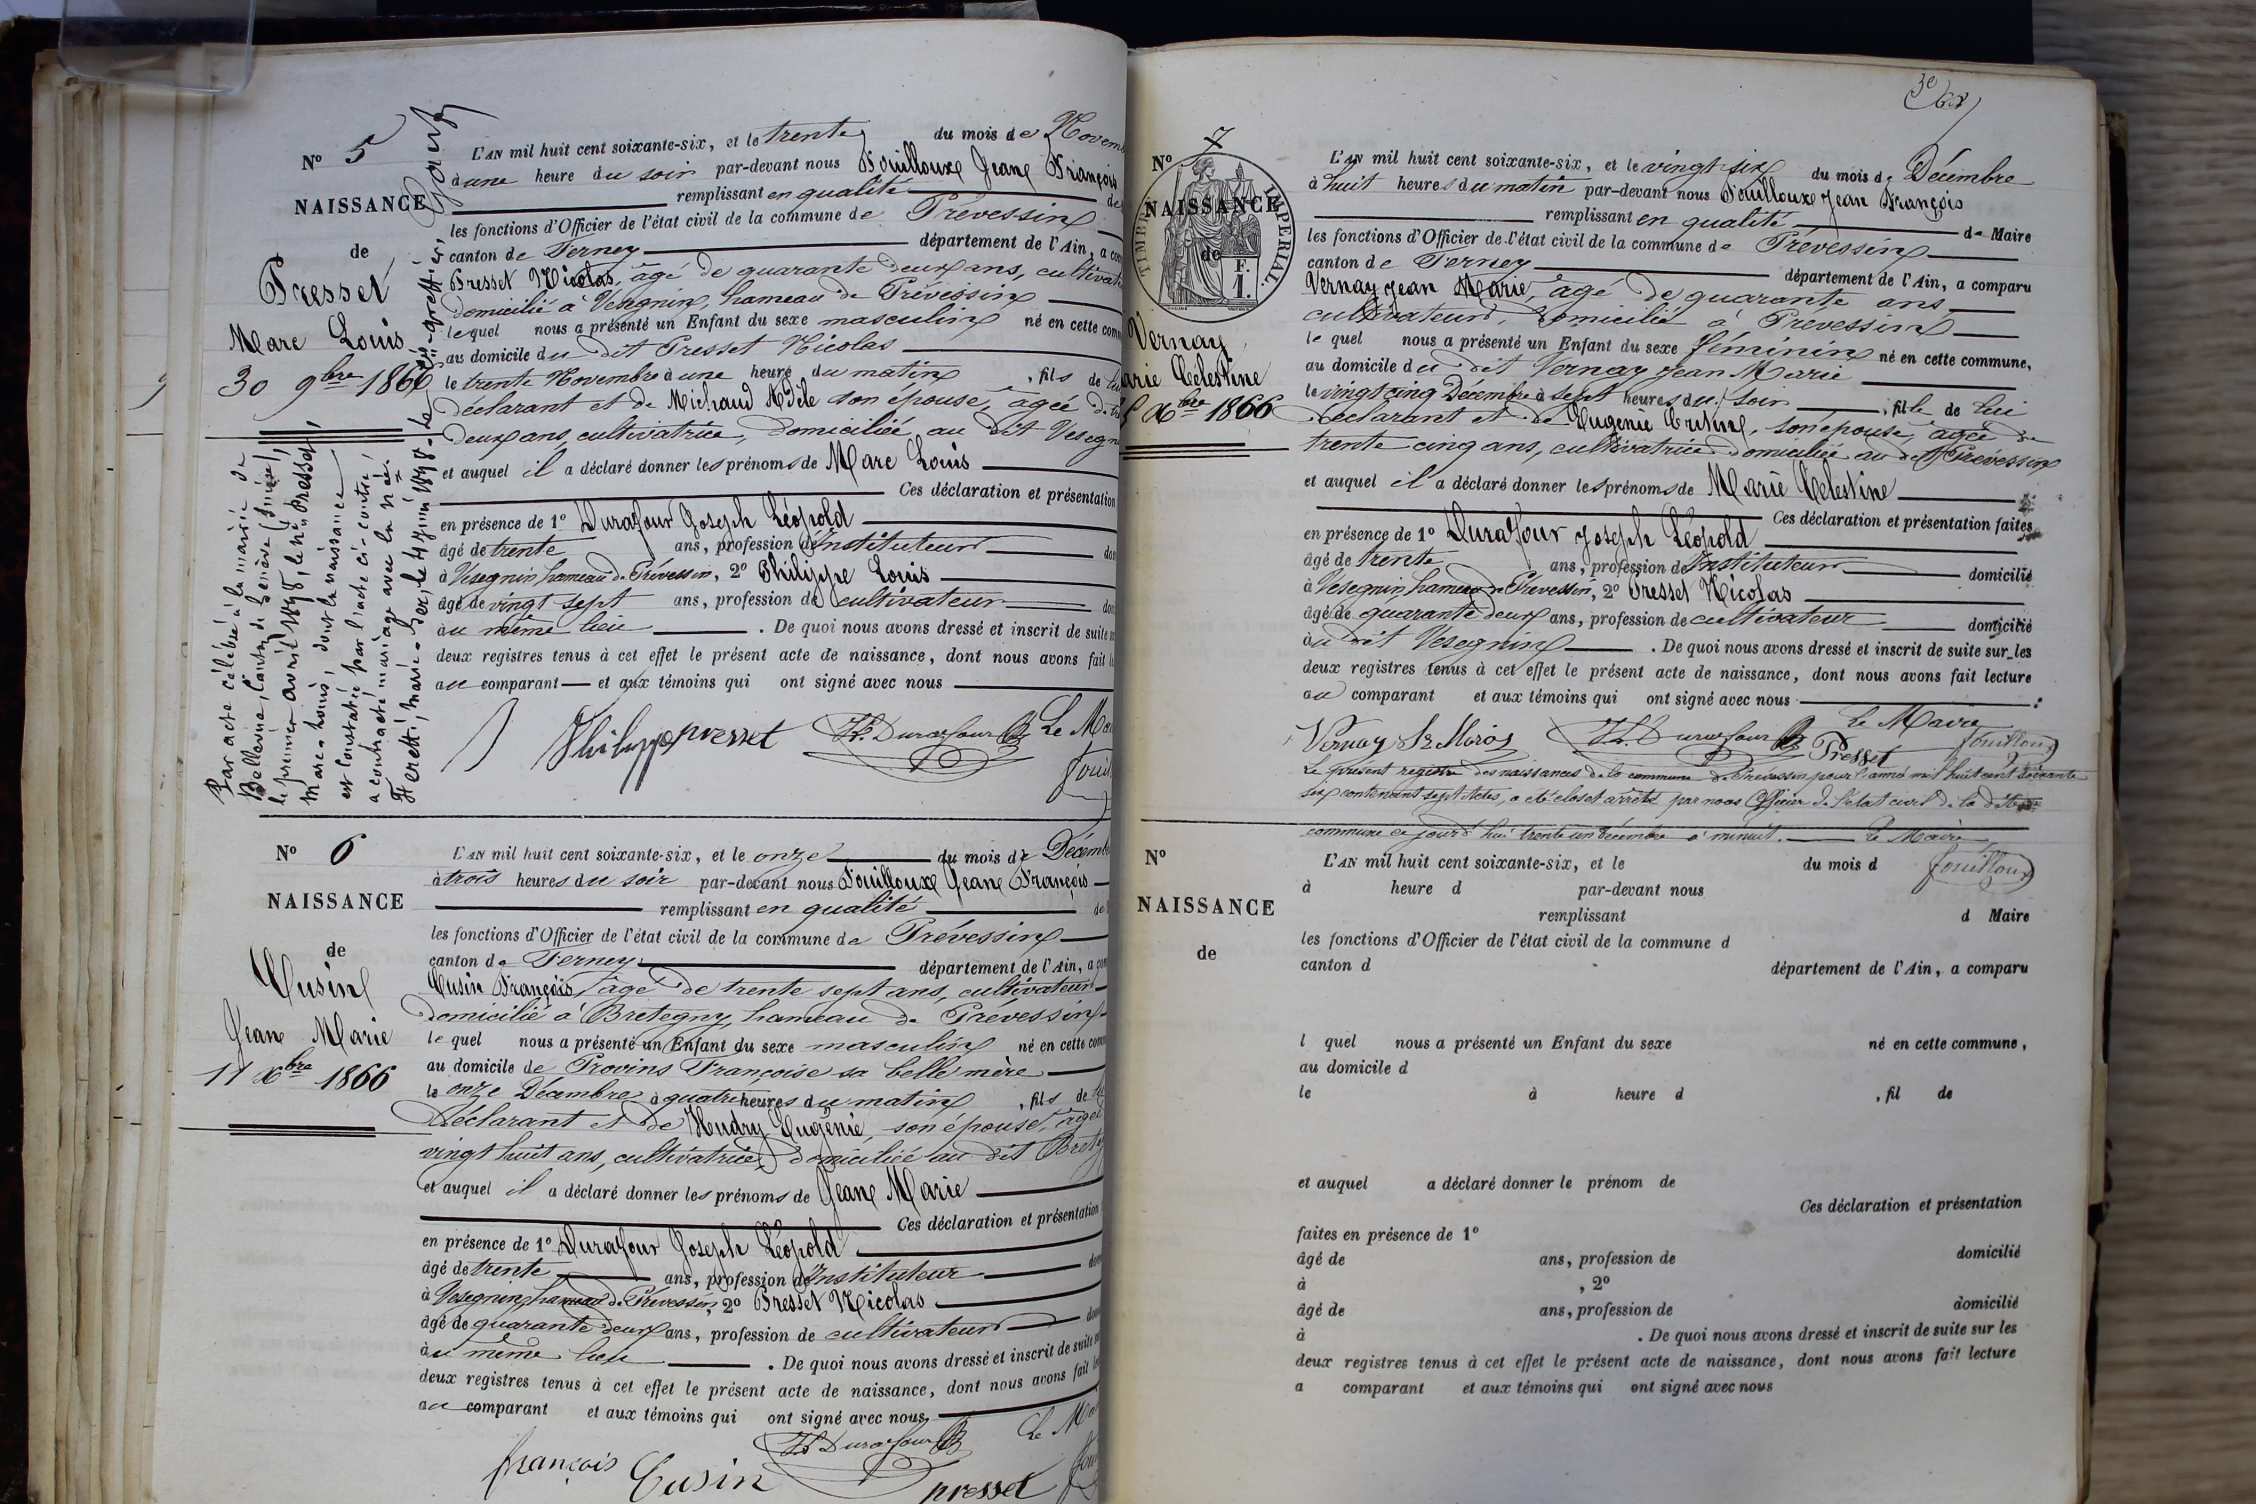 N° 5
NAISSANCE
de
Presset
Marc Louis
30 9bre 1866
Par acte célébré à la mairie de
Bellevue, Canton de Genève (Suisse),
le premier avril 1898, le né Presset,
Marc-Louis, dont la naissance
est constatée par l'acte ci-contre,
a contracté mariage avec la née
Marie. Gex, le 4 juin 1898. Le greffier,
L'AN mil huit cent soixante-six, et le trente du mois de Novem
à une heure du soir par-devant nous Fouilloux Jean François
remplissant en qualité de
les fonctions d'Officier de l'état civil de la commune de Prévessin
canton de Ferney département de l'Ain, a com
Presset Nicolas, âgé de quarante deux ans, cultivat
domicilié à Vésegnin, hameau de Prévessin
lequel nous a présenté un Enfant du sexe masculin né en cette com
au domicile du dit Presset Nicolas
le trente Novembre à une heure du matin, fils de lui
déclarant et de Michaud Adèle son épouse, âgée de
deux ans, cultivatrice, domiciliée au dit Vesegn
et auquel il a déclaré donner les prénoms de Marc Louis
Ces déclaration et présentation
en présence de 1° Durafour Joseph Léopold
âgé de trente ans, profession de Instituteur dom
à Vesegnin hameau de Prévessin, 2° Philippe Louis
âgé de vingt sept ans, profession de cultivateur dom
au même lieu. De quoi nous avons dressé et inscrit de suite
deux registres tenus à cet effet le présent acte de naissance, dont nous avons fait
au comparant et aux témoins qui ont signé avec nous
Philippe presset JL Durafour Le Ma
Fouil
N° 6
NAISSANCE
de
Cusin
Jean Marie
11 Xbre 1866
L'AN mil huit cent soixante-six, et le onze du mois de Décemb
à trois heures du soir par-devant nous Fouilloux Jean François
remplissant en qualité de
les fonctions d'Officier de l'état civil de la commune de Prévessin
canton de Ferney département de l'Ain, a com
Cusin François, âgé de trente sept ans, cultivateur
domicilié à Bretegny, hameau de Prévessin
lequel nous a présenté un Enfant du sexe masculin né en cette com
au domicile de Provins Françoise sa belle mère
le onze Décembre à quatre heures du matin, fils de
déclarant et de Hudry Eugénie, son épouse, âgée
vingt huit ans, cultivatrice, domiciliée au dit Breteg
et auquel il a déclaré donner les prénoms de Jean Marie
Ces déclaration et présentation
en présence de 1° Durafour Joseph Léopold
âgé de trente ans, profession de Instituteur dom
à Vesegnin hameau de Prévessin, 2° Presset Nicolas
âgé de quarante deux ans, profession de cultivateur dom
au même lieu. De quoi nous avons dressé et inscrit de suite
deux registres tenus à cet effet le présent acte de naissance, dont nous avons fait
au comparant et aux témoins qui ont signé avec nous
JL Durafour Le Ma
françois Cusin presset
N° 7
TIMBRE IMPERIAL
F.
1.
NAISSANCE
de
Vernay
arie Celestine
Xbre 1866
L'AN mil huit cent soixante-six, et le vingt-six du mois de Décembre
à huit heures du matin par-devant nous Fouilloux Jean François
remplissant en qualité de Maire
les fonctions d'Officier de l'état civil de la commune de Prévessin
canton de Ferney département de l'Ain, a comparu
Vernay Jean Marie, âgé de quarante ans
cultivateur, domicilié à Prévessin
lequel nous a présenté un Enfant du sexe féminin né en cette commune,
au domicile du dit Vernay Jean Marie
le vingt cinq Décembre à sept heures du soir, fille de lui
déclarant et de Eugénie Cristine, son épouse, âgée de
trente cinq ans, cultivatrice domiciliée au dit Prévessin
et auquel il a déclaré donner les prénoms de Marie Celestine
Ces déclaration et présentation faites
en présence de 1° Durafour Joseph Léopold
âgé de trente ans, profession de Instituteur domicilié
à Vesegnin hameau de Prévessin, 2° Presset Nicolas
âgé de quarante deux ans, profession de cultivateur domicilié
au dit Vesegnin. De quoi nous avons dressé et inscrit de suite sur les
deux registres tenus à cet effet le présent acte de naissance, dont nous avons fait lecture
au comparant et aux témoins qui ont signé avec nous
Vernay JL Durafour Presset Le Maire
Fouilloux
Le présent registre des naissances de la commune de Prévessin pour l'année mil huit cent soixante
six contenant sept Actes, a été clos et arrêté par nous Officier de l'état civil de la dite
commune ce jourd'hui trente un Décembre à minuit. Le Maire
Fouilloux
N°
NAISSANCE
de
L'AN mil huit cent soixante-six, et le du mois d
à heure d par-devant nous
remplissant d Maire
les fonctions d'Officier de l'état civil de la commune d
canton d département de l'Ain, a comparu
l quel nous a présenté un Enfant du sexe né en cette commune,
au domicile d
le à heure d , fil de
et auquel a déclaré donner le prénom de
Ces déclaration et présentation
faites en présence de 1°
âgé de ans, profession de domicilié
à , 2°
âgé de ans, profession de domicilié
à . De quoi nous avons dressé et inscrit de suite sur les
deux registres tenus à cet effet le présent acte de naissance, dont nous avons fait lecture
a comparant et aux témoins qui ont signé avec nous